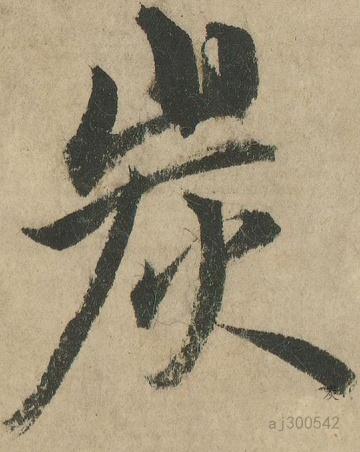 炭
aj300542